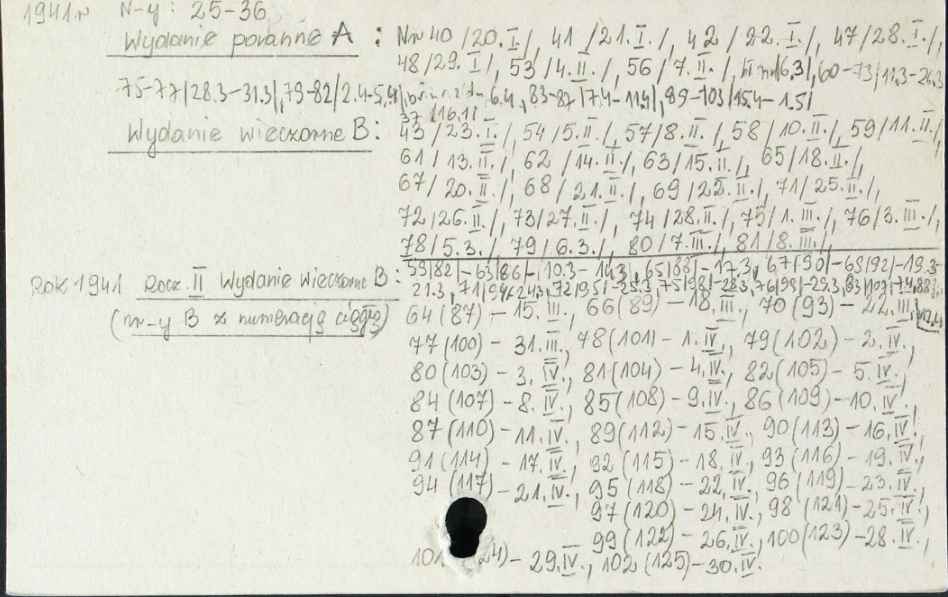 1941 r. N-y: 25-36
Wydanie poranne A : Nr 40 /20.I./, 41 /21.I./, 42 /22.I./, 47/28.I./,
48/29.I/, 53 /4.II./, 56 /7.II./, 6,3/, 60-73/11.3-26.3
75-77/28.3-31.3/, 79-82/2.4-5.4/, 6.4, 83-87/7.4-11.4/, 89-103/15.4-1.5/
37 /16.1/
Wydanie wieczorne B: 43/23.I./, 54/5.II./, 57/8.II./, 58/10.II./, 59/11.II./,
61/13.II./, 62/14.II./, 63/15.II./, 65/18.II./,
67/20.II./, 68/21.II./, 69/22.II./, 71/25.II./,
72/26.II./, 73/27.II./, 74/28.II./, 75/1.III./, 76/3.III./,
78/5.3./, 79/6.3./, 80/7.III./, 81/8.III./,
Rok 1941 Rocz. II Wydanie wieczorne B: 59/82/-63/86/-/10.3-14.3/, 65/88/-17.3, 67/90/-69/92/-19.3-
21.3, 71/94/-24.3, 72/95/-25.3, 75/98/-28.3, 76/99/-29.3, 83/103/-7.4, 88
(nr-y B z numeracją ciągłą) 64 (87) - 15.III., 66 (89) - 18.III., 70 (93) - 22.III.,
77 (100) - 31.III., 78 (101) - 1.IV., 79 (102) - 2.IV.,
80 (103) - 3.IV., 81 (104) - 4.IV., 82 (105) - 5.IV.,
84 (107) - 8.IV., 85 (108) - 9.IV., 86 (109) - 10.IV.,
87 (110) - 11.IV., 89 (112) - 15.IV., 90 (113) - 16.IV.,
91 (114) - 17.IV., 92 (115) - 18.IV., 93 (116) - 19.IV.,
94 (117) - 21.IV., 95 (118) - 22.IV., 96 (119) - 23.IV.,
97 (120) - 24.IV., 98 (121) - 25.IV.,
99 (122) - 26.IV., 100 (123) - 28.IV.,
101 24) - 29.IV., 102 (125) - 30.IV.